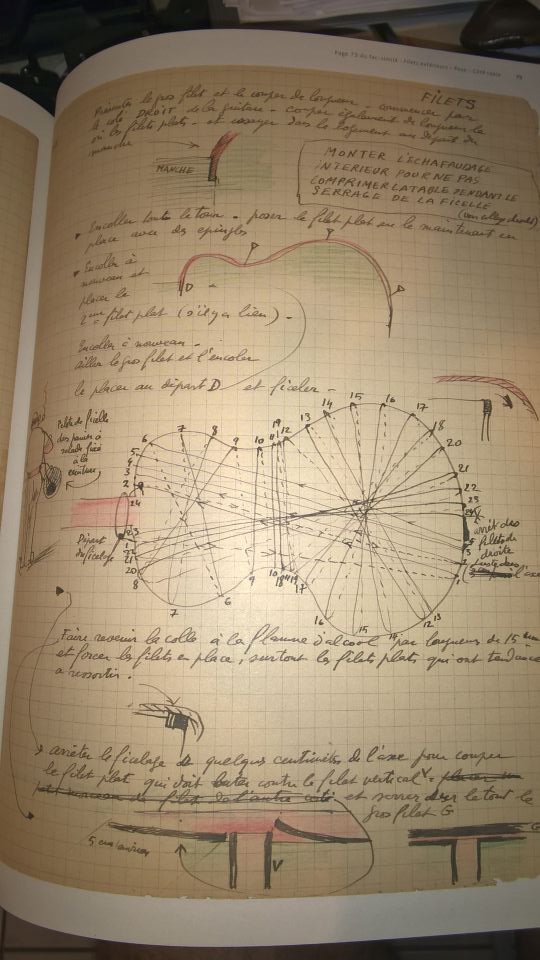 Page 75 du fac-similé - Filets extérieurs - Pose - Côté table
FILETS
Présenter le gros filet et le couper de longueur - commencer par
le côté DROIT de la guitare - couper également de longueur le
ou les filets plats - et essayer dans le logement au départ du
manche
MANCHE
MONTER L'ECHAFAUDAGE
INTERIEUR POUR NE PAS
COMPRIMER LA TABLE PENDANT LE
SERRAGE DE LA FICELLE
Encoller tout le tour - poser le filet plat en le maintenant en
place avec des epingles
Encoller à
nouveau et
placer le
2eme filet plat (s'il y a lieu) -
D
D
Encoller à nouveau -
le gros filet et l'encoller
le placer au départ D et ficeler -
Pelote de ficelle
fixé
à la
ceinture
Départ
du ficelage
6 7 8 9 10 11 19 12 13 14 15 16 17 18 20 21 22 23
5 4 3 2 24
21 20 8 7 6 9 10 18 14 19 17 16 15 14 12 13
arrêt des
filets de
droite
Juste dans
l'axe
Faire revenir la colle à la flamme d'alcool par longueurs de 15
et forcer les filets en place, surtout les filets plats qui ont tendance
a ressortir.
arrêter le ficelage de quelques centimètres de l'axe pour couper
le filet plat qui doit buter contre le filet vertical V - placer un
petit morceau de filet de l'autre coté et serrer sur le tout le
gros filet G
5 cm environ
V
G